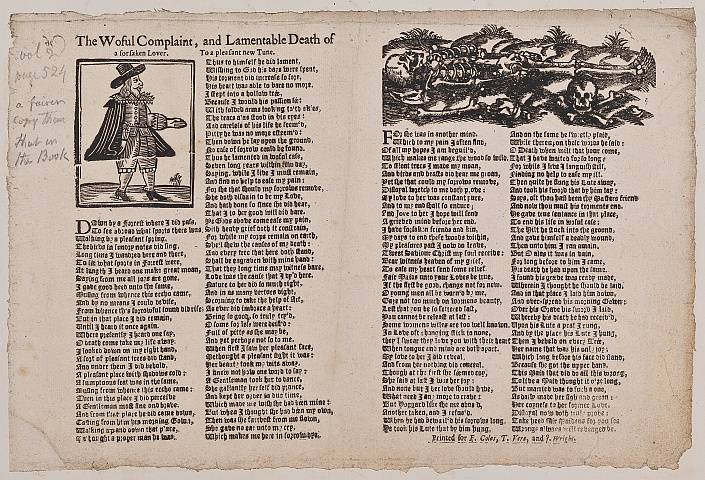 vol 2
page 524
a fairer
copy than
that in
the Book
The Woful Complaint, and Lamentable Death of
a forsaken Lover. To a pleasant new Tune.
DOwn by a Forrest where I did pass,
To see abroad what sports there was
Walking by a pleasant spring,
The birds in sundry notes did sing,
Long time I wandred here and there,
To see what sports in Forrest were,
At length I heard one make great moan,
Saying from me all joys are gone.
I gave good heed unto the same,
Musing from whence this echo came,
And by no means I could devise,
From whence this sorrowful sound did rise
But in that place I did remain
Until I heard it once again.
Where presently I heard one say,
O death come take my life away.
I looked down on my right hand,
A sort of pleasant trees did stand,
And under them I did behold,
A pleasant place with shadows cold:
A sumptuous seat was in the same,
Musing from whence this echo came:
Even in this place I did perceive
A Gentleman most fine and brave.
And from that place he did come down,
Casting from him his mourning Gown,
Walking up and down that place,
Me thought a proper man he was.
Thus to himself he did lament,
Wishing to God his days were spent,
His torment did increase so sore,
His heart was able to bare no more.
I slept into a hollow tree,
Because I would his passion see:
With folded arms looking to th' skies,
The tears always stood in his eyes:
And careless of his life he seem'd,
Pitty he was no more esteem'd:
Then down he lay upon the ground,
No ease of sorrow could be found.
Thus he lamented in woful case,
Seven long years within few days,
Saying, while I live I must remain,
And find no help to ease my pain:
For she that should my sorrows remove,
She doth disdain to be my Love,
And hath done so since she did hear,
That I to her good will did bare.
Ye Gods above come ease my pain,
Sith heavy grief doth it constrain,
For while my corps remain on earth,
She'll shew the causes of my death:
And every tree that here doth stand,
Shall be engraven with mine hand:
That they long time may witness bare,
Love was the cause that I dy'd here.
Nature to her did so much right,
And in as many vertues dight,
Scorning to take the help of Art,
As ever did imbrace a heart:
Being so good, so truly try'd,
O some for less were deifi'd:
Full of pitty as she may be,
And yet perhaps not so to me.
When first I saw her pleasant face,
Methought a pleasant sight it was:
Her beauty took my wits away,
I knew not how one word to say:
A Gentleman took her to dance,
She gallantly her self did prance,
And kept her order in due time,
Which made me wish she had been mine:
But when I thought she had been my own,
Then was she farthest from me flown,
She gave no ear unto my cry,
Which makes me here in sorrow dye.
FOr she was in another mind,
Which to my pain I often find,
Of all my hopes I am beguil'd,
Which makes me range the wood so wild,
To silent trees I made my moan,
And birds and beasts did hear me groan,
Yet she that could my sorrows remove,
Disloyal wretch to me doth prove,
My love to her was constant sure,
And to my end shall so endure;
And love to her I hope will send
A grieved mind before her end.
I have forsaken friends and kin,
My days to end these woods within,
My pleasures past I now do leave,
Sweet Saviour Christ my soul receive:
Dear witness heaven of my grief,
To ease my heart send some relief.
Fair Maids unto your Loves be true,
If the first be good, change not for new.
O young men all be warn'd by me,
Gaze not too much on womens beauty,
Lest that you be so fettered fast,
You cannot be releast at last:
Some womens wiles are too well known,
In Love oft-having stick to none,
they'l swear they love you with their heart
When tongue and mind are both apart.
My love to her I did reveal,
And from her nothing did conceal,
Though at the first she seemed coy,
She said at last I was her joy:
And none but I her love should have,
What need I any more to crave:
But Woman's like she not abey'd,
Another taken, and I refus'd.
When he had bewail'd his sorrows long
He took his Lute that by him hung,
And on the same he sweetly plaid,
While thereupon these words he said:
O Death when wilt thou come,
That I have waited for so long:
For I live here a languisht life,
Finding no help to ease my ill.
Then quite he flung his Lute away,
And took his sword that by him lay:
Says, oft thou hast been thy Masters friend
And now thou must his torments end.
He gave true sentance in that place,
To end his life in woful case:
The hilt he stuck into the ground,
And gave himself a deadly wound,
Then unto him I ran amain,
But O alas it was in vain,
For long before to him I came,
His death he had upon the same.
I found his grave was ready made,
Wherein I thought he should be laid,
And in that place I laid him down,
And over-spread his mourning Gown:
Over his Grave his sword I laid,
Whereby his death he had receiv'd,
Upon his Lute a part I rung,
And by the place his Lute I hung,
Then I beheld on every Tree,
Her name that was his only joy:
Which long before his face did stand,
Because she got the upper hand.
Thus she that did do all this wrong,
To live a Maid thought it too long,
But married was to such a one,
As daily made her sob and groan:
Her corps to be her former Love,
Disloyal now doth truly prove:
Take heed Maidens for you see
Wrongs always will revenged be.
Printed for F. Coles, T. Vere, and J. Wright.